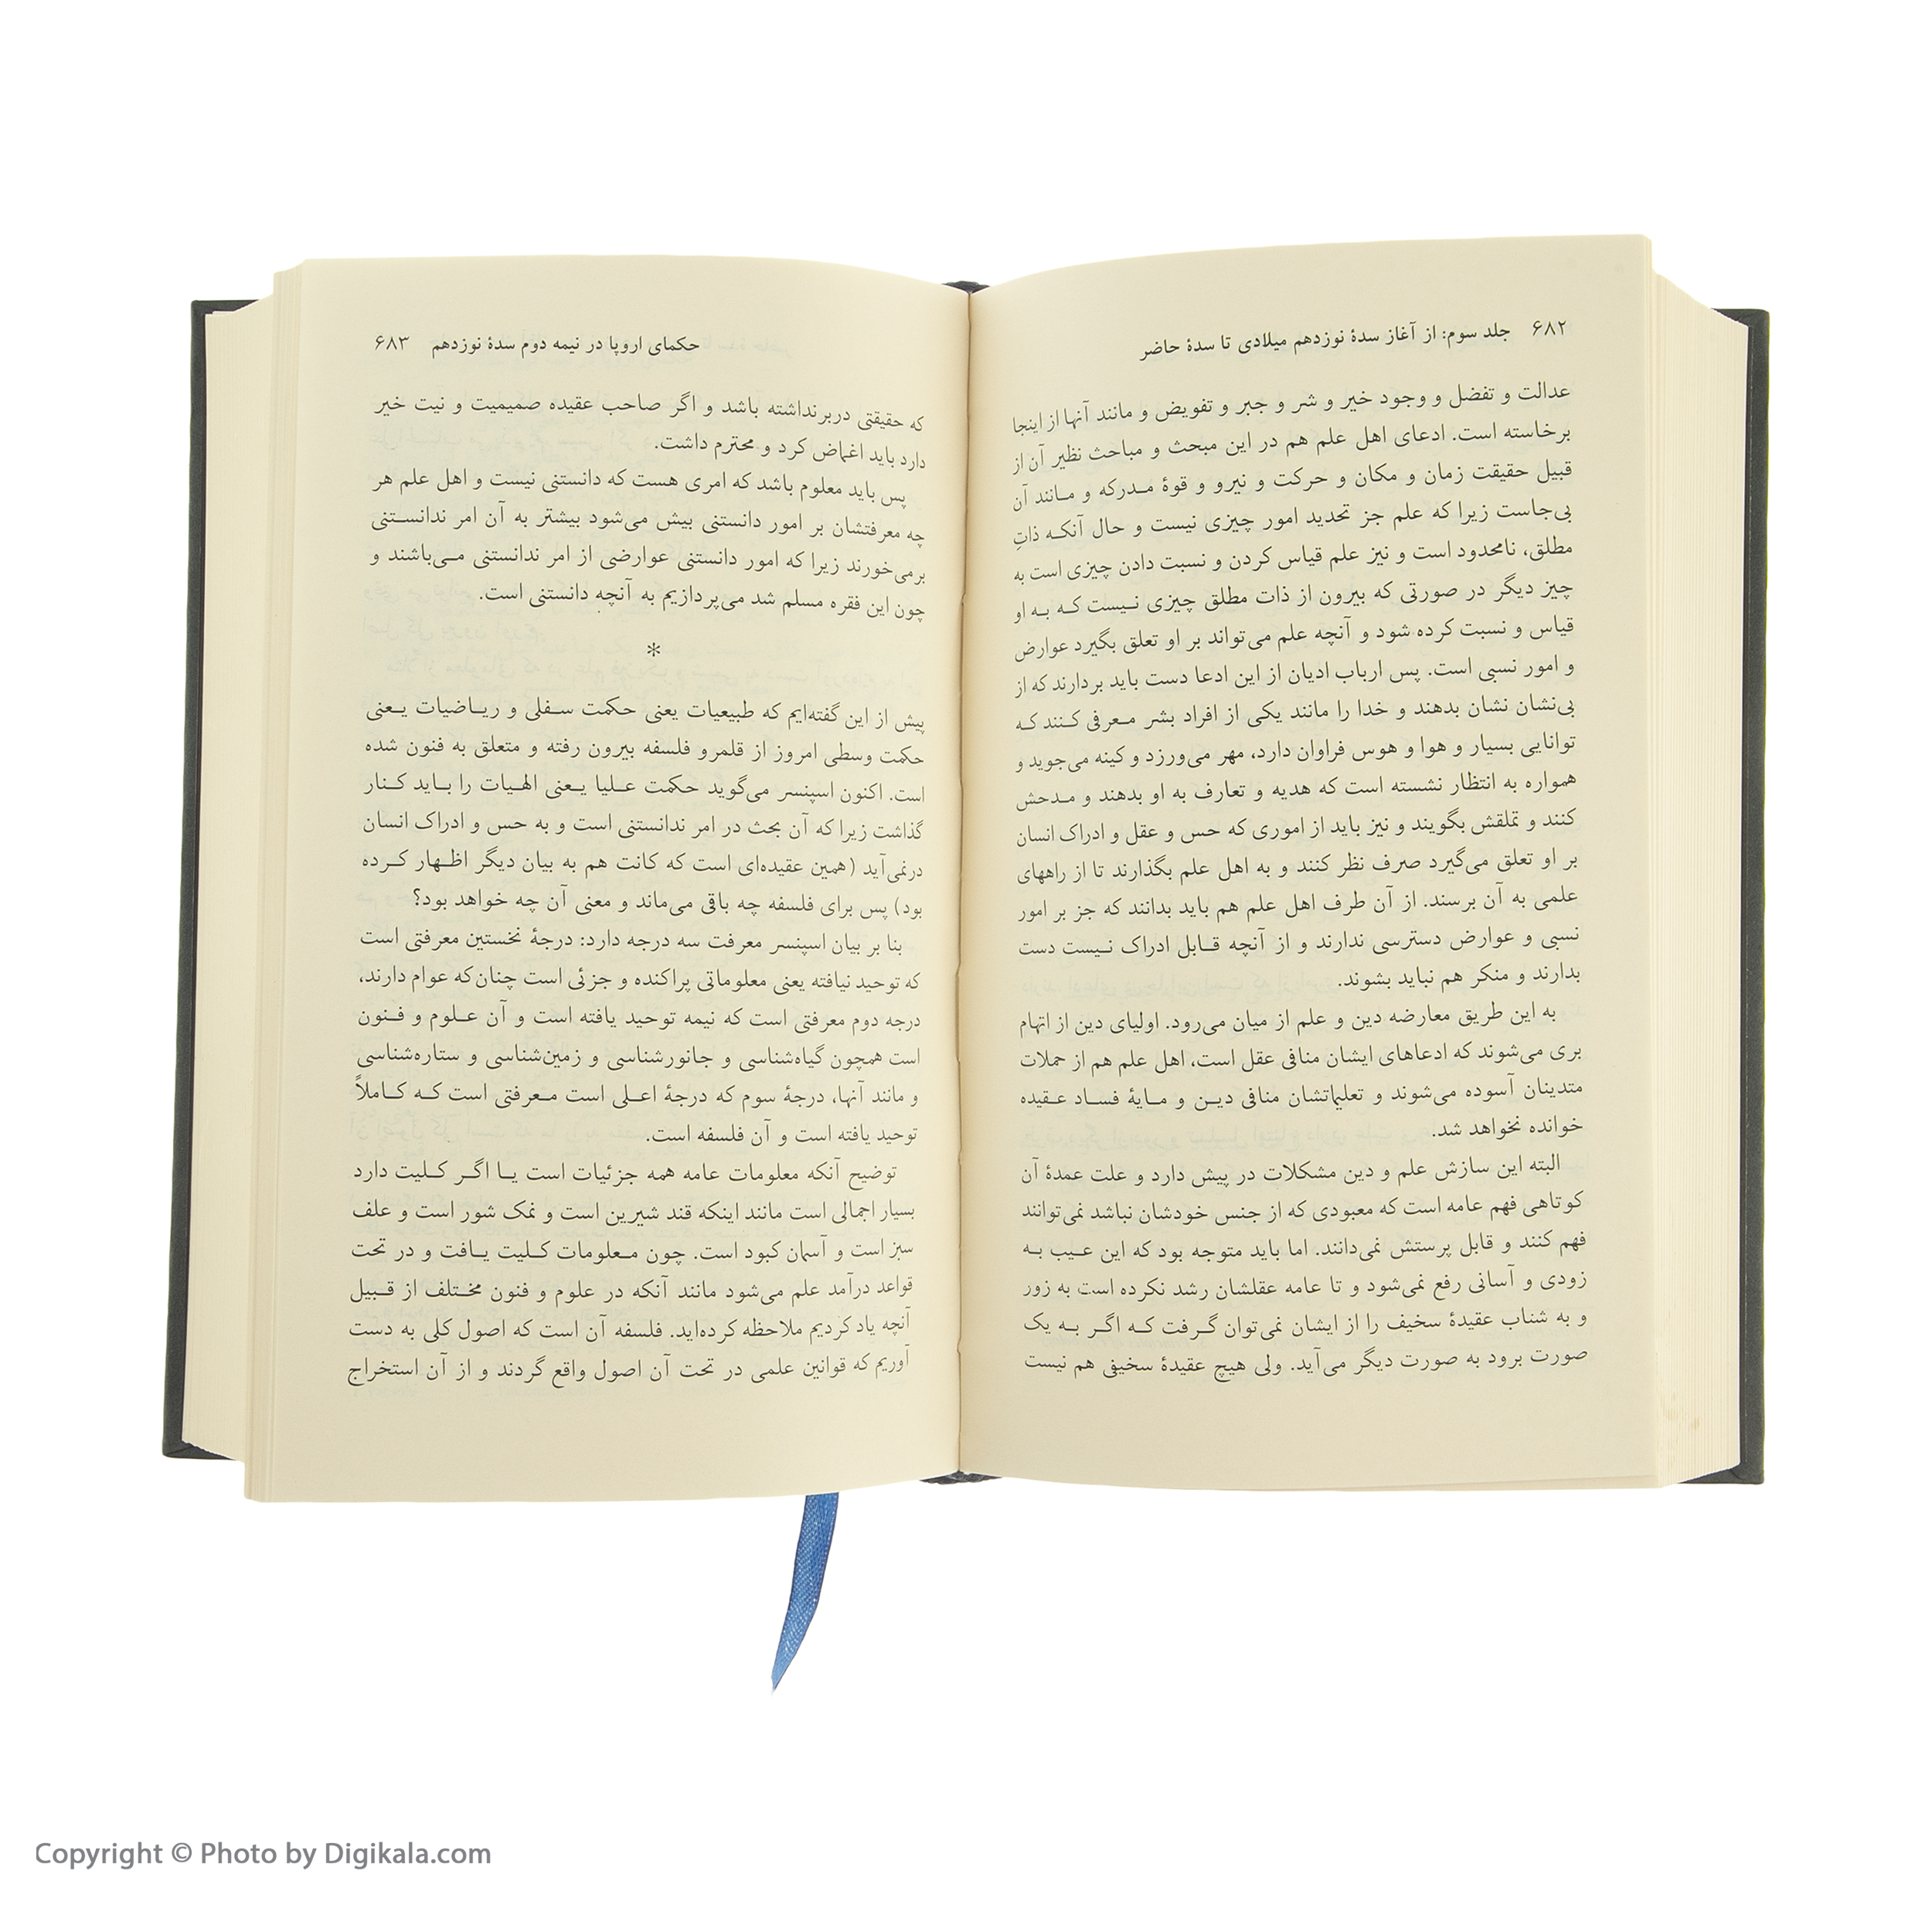 ۶۸۲ جلد سوم: از آغاز سدهٔ نوزدهم میلادی تا سدهٔ حاضر
عدالت و تفضل و وجود خیر و شر و جبر و تفویض و مانند آنها از اینجا
برخاسته است. ادعای اهل علم هم در این مبحث و مباحث نظیر آن از
قبیل حقیقت زمان و مکان و حرکت و نیرو و قوهٔ مدرکه و مانند آن
بی‌جاست زیرا که علم جز تحدید امور چیزی نیست و حال آنکه ذاتِ
مطلق، نامحدود است و نیز علم قیاس کردن و نسبت دادن چیزی است به
چیز دیگر در صورتی که بیرون از ذات مطلق چیزی نیست که به او
قیاس و نسبت کرده شود و آنچه علم می‌تواند بر او تعلق بگیرد عوارض
و امور نسبی است. پس ارباب ادیان از این ادعا دست باید بردارند که از
بی‌نشان نشان بدهند و خدا را مانند یکی از افراد بشر معرفی کنند که
توانایی بسیار و هوا و هوس فراوان دارد، مهر می‌ورزد و کینه می‌جوید و
همواره به انتظار نشسته است که هدیه و تعارف به او بدهند و مدحش
کنند و تملقش بگویند و نیز باید از اموری که حس و عقل و ادراک انسان
بر او تعلق می‌گیرد صرف نظر کنند و به اهل علم بگذارند تا از راههای
علمی به آن برسند. از آن طرف اهل علم هم باید بدانند که جز بر امور
نسبی و عوارض دسترسی ندارند و از آنچه قابل ادراک نیست دست
بدارند و منکر هم نباید بشوند.
به این طریق معارضه دین و علم از میان می‌رود. اولیای دین از اتهام
بری می‌شوند که ادعاهای ایشان منافی عقل است، اهل علم هم از حملات
متدینان آسوده می‌شوند و تعلیماتشان منافی دین و مایهٔ فساد عقیده
خوانده نخواهد شد.
البته این سازش علم و دین مشکلات در پیش دارد و علت عمدهٔ آن
کوتاهی فهم عامه است که معبودی که از جنس خودشان نباشد نمی‌توانند
فهم کنند و قابل پرستش نمی‌دانند. اما باید متوجه بود که این عیب به
زودی و آسانی رفع نمی‌شود و تا عامه عقلشان رشد نکرده است به زور
و به شتاب عقیدهٔ سخیف را از ایشان نمی‌توان گرفت که اگر به یک
صورت برود به صورت دیگر می‌آید. ولی هیچ عقیدهٔ سخیفی هم نیست
حکمای اروپا در نیمه دوم سدهٔ نوزدهم ۶۸۳
که حقیقتی دربرنداشته باشد و اگر صاحب عقیده صمیمیت و نیت خیر
دارد باید اغماض کرد و محترم داشت.
پس باید معلوم باشد که امری هست که دانستنی نیست و اهل علم هر
چه معرفتشان بر امور دانستنی بیش می‌شود بیشتر به آن امر ندانستنی
برمی‌خورند زیرا که امور دانستنی عوارضی از امر ندانستنی می‌باشند و
چون این فقره مسلم شد می‌پردازیم به آنچه دانستنی است.
*
پیش از این گفته‌ایم که طبیعیات یعنی حکمت سفلی و ریاضیات یعنی
حکمت وسطی امروز از قلمرو فلسفه بیرون رفته و متعلق به فنون شده
است. اکنون اسپنسر می‌گوید حکمت علیا یعنی الهیات را باید کنار
گذاشت زیرا که آن بحث در امر ندانستنی است و به حس و ادراک انسان
درنمی‌آید (همین عقیده‌ای است که کانت هم به بیان دیگر اظهار کرده
بود) پس برای فلسفه چه باقی می‌ماند و معنی آن چه خواهد بود؟
بنا بر بیان اسپنسر معرفت سه درجه دارد: درجهٔ نخستین معرفتی است
که توحید نیافته یعنی معلوماتی پراکنده و جزئی است چنان‌که عوام دارند،
درجه دوم معرفتی است که نیمه توحید یافته است و آن علوم و فنون
است همچون گیاه‌شناسی و جانورشناسی و زمین‌شناسی و ستاره‌شناسی
و مانند آنها، درجهٔ سوم که درجهٔ اعلی است معرفتی است که کاملاً
توحید یافته است و آن فلسفه است.
توضیح آنکه معلومات عامه همه جزئیات است یا اگر کلیت دارد
بسیار اجمالی است مانند اینکه قند شیرین است و نمک شور است و علف
سبز است و آسمان کبود است. چون معلومات کلیت یافت و در تحت
قواعد درآمد علم می‌شود مانند آنکه در علوم و فنون مختلف از قبیل
آنچه یاد کردیم ملاحظه کرده‌اید. فلسفه آن است که اصول کلی به دست
آوریم که قوانین علمی در تحت آن اصول واقع گردند و از آن استخراج
Copyright © Photo by Digikala.com